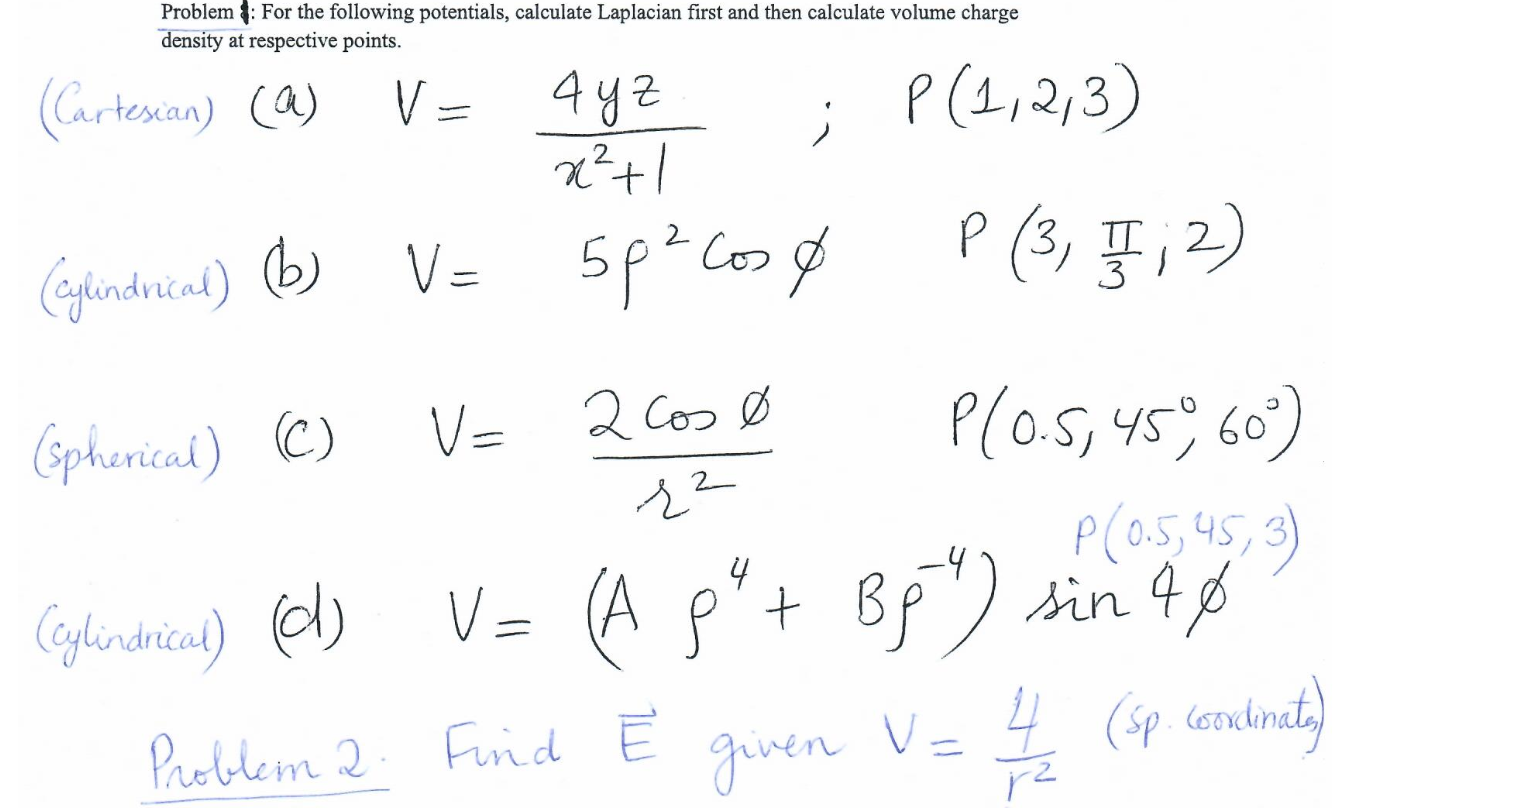 Problem : For the following potentials, calculate Laplacian first and then calculate volume charge
density at respective points.
(Cartesian) (a) V = 4yz / x²+1 ; P(1,2,3)
(cylindrical) (b) V = 5ρ² Cos ϕ P(3, π/3, 2)
(spherical) (c) V = 2 Cos ϕ / r² P(0.5, 45°, 60°)
P(0.5, 45, 3)
(cylindrical) (d) V = (A ρ⁴ + Bρ⁻⁴) sin 4ϕ
Problem 2. Find E⃗ given V = 4 / r² (sp. coordinates)